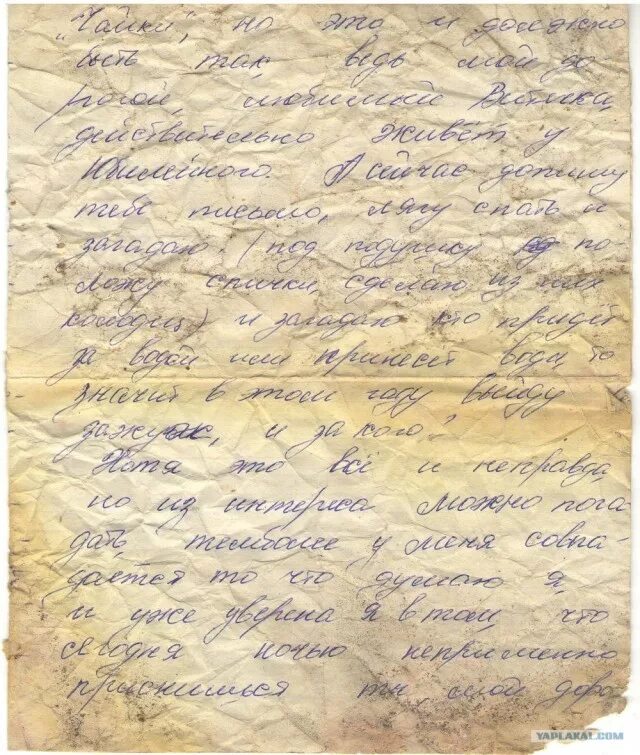 "Чайки", но это и должно
быть так, ведь мой до
рогой, любимый Витька,
действительно живёт у
Юбилейного. А сейчас допишу
тебе письмо, лягу спать и
загадаю. (под подушку по
ложу спички, сделаю из них
колодец) и загадаю кто придёт
за водой или принесёт воды, то
значит в этом году выйду
замуж, и за кого?
Хотя это всё и неправда,
но из интереса можно пога
дать, темболее у меня совпа
дается то что думаю я,
и уже уверена я в том, что
сегодня ночью неприменно
приснишься ты, мой доро
YAPLAKAL.COM